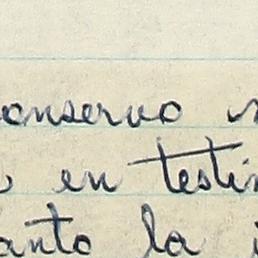 onservo
en testi
anto la